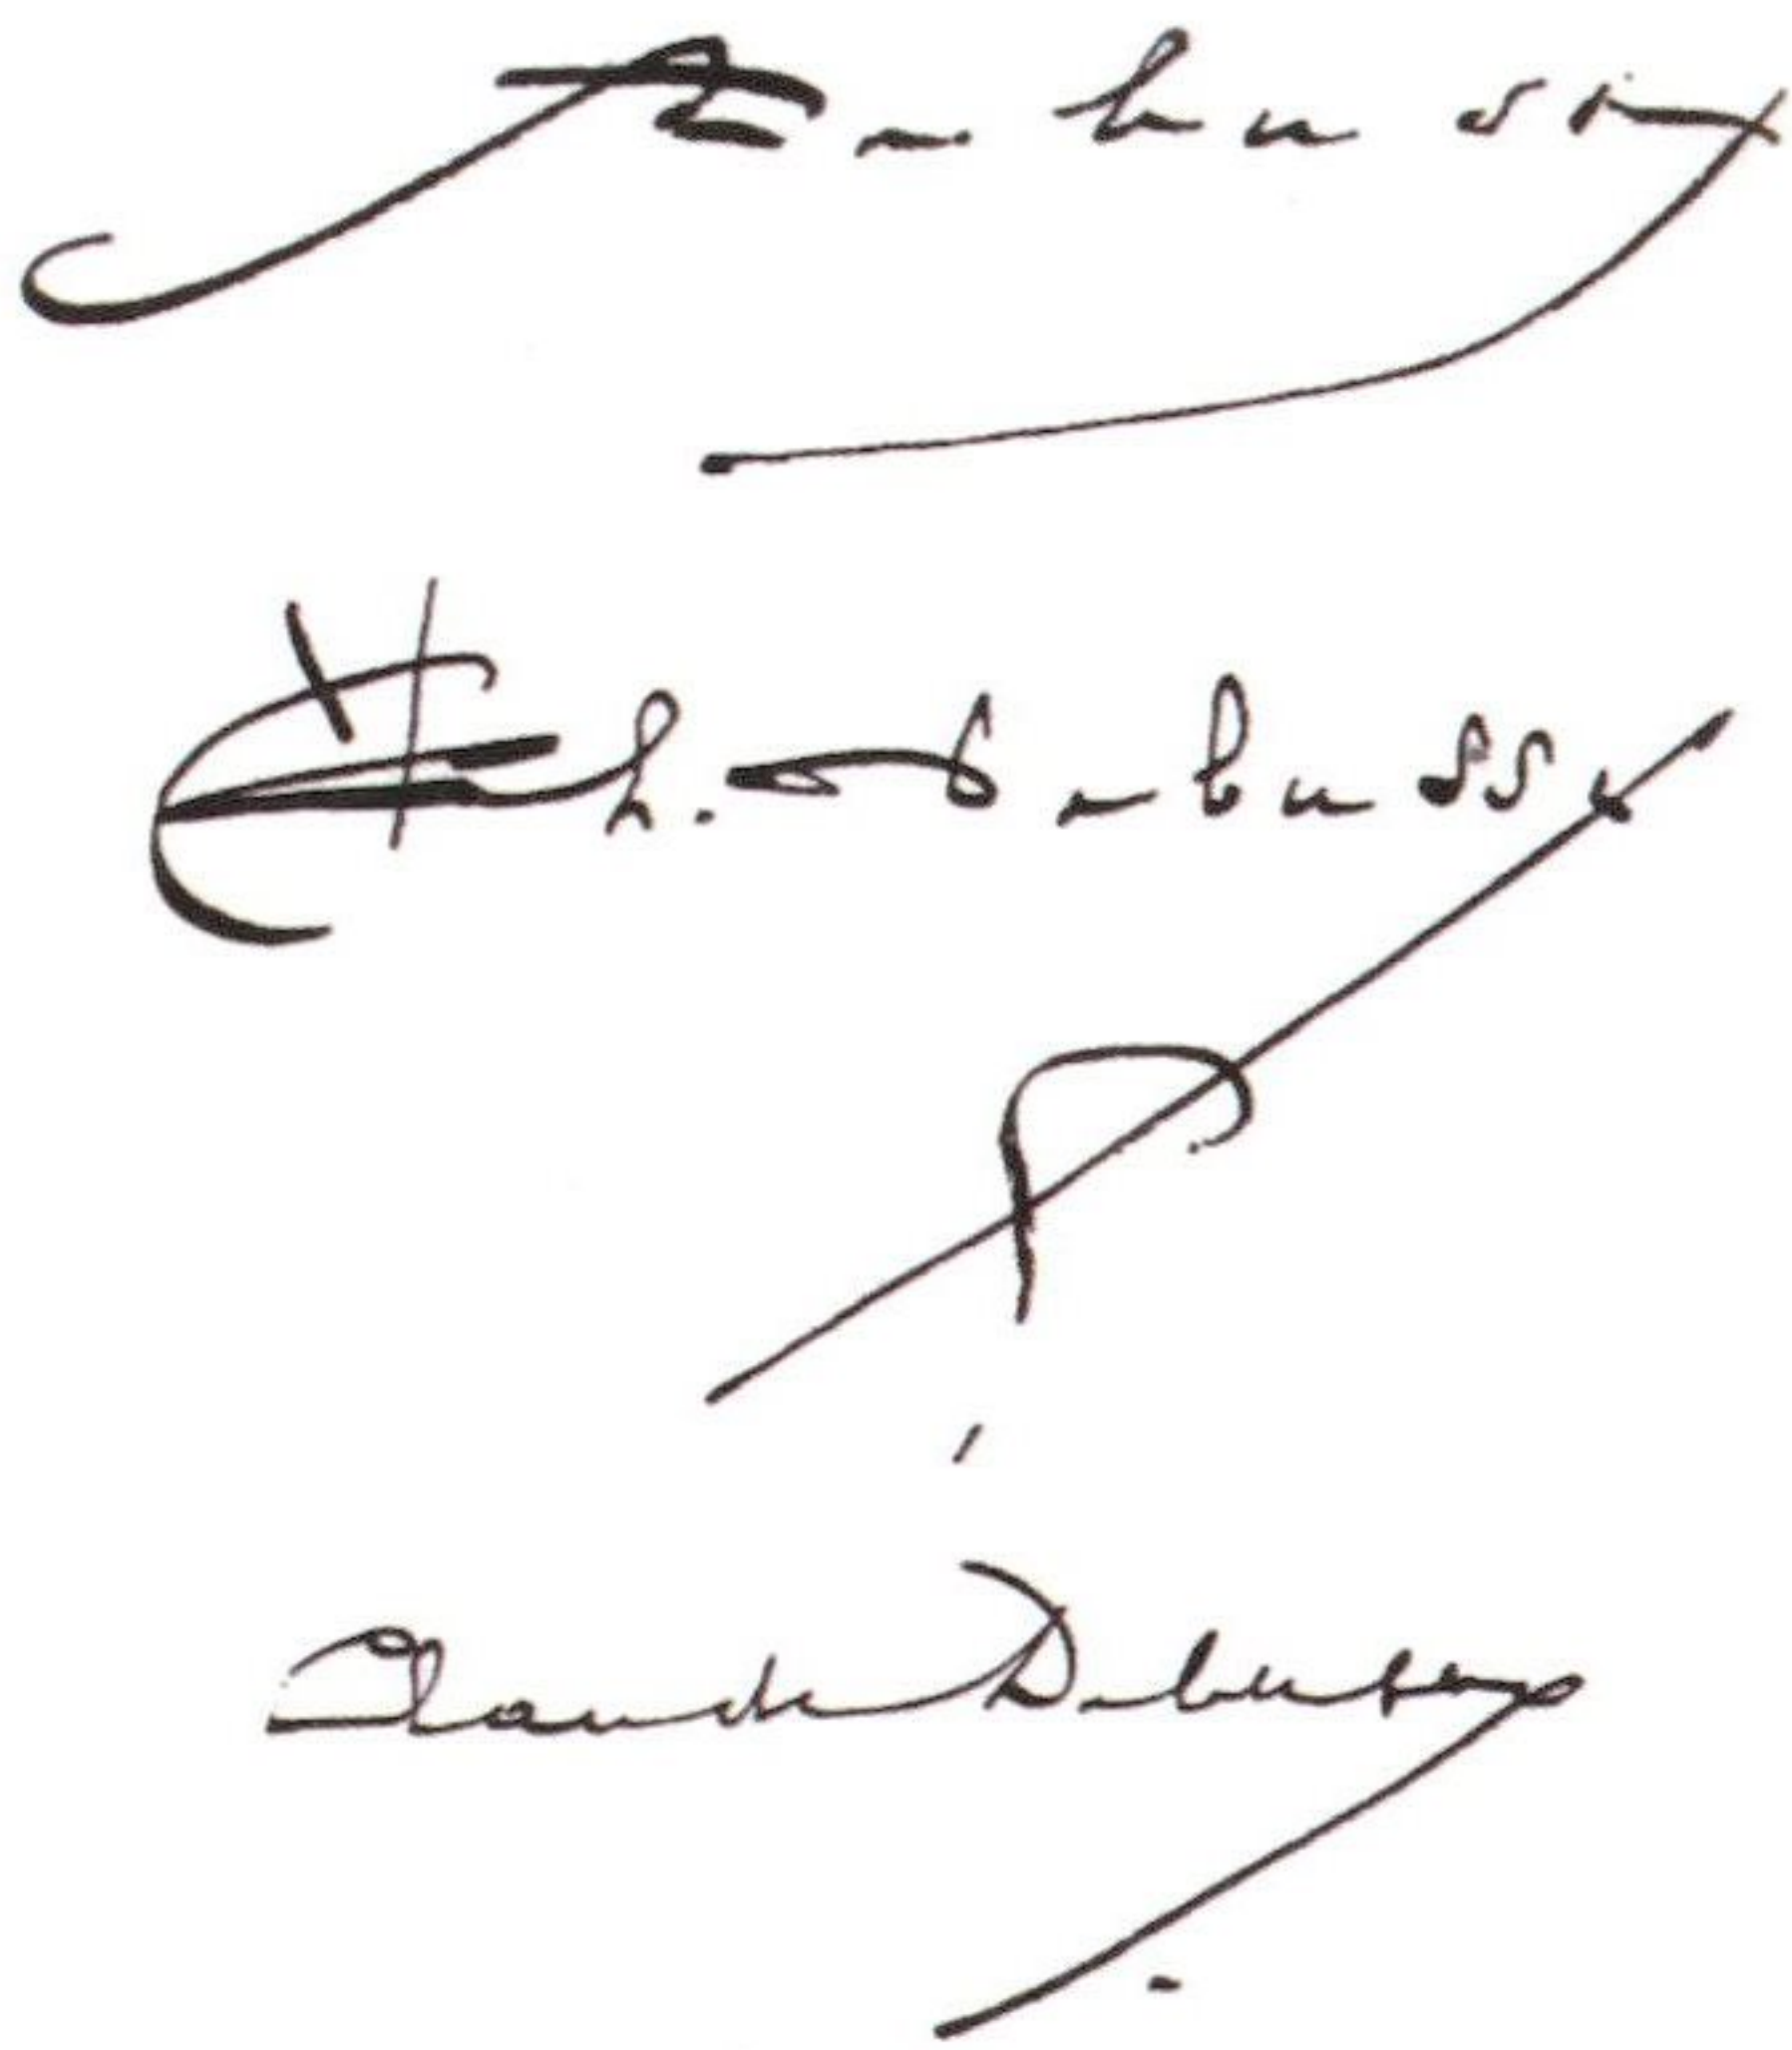 A. Debussy
Ch. Debussy
Claude Debussy